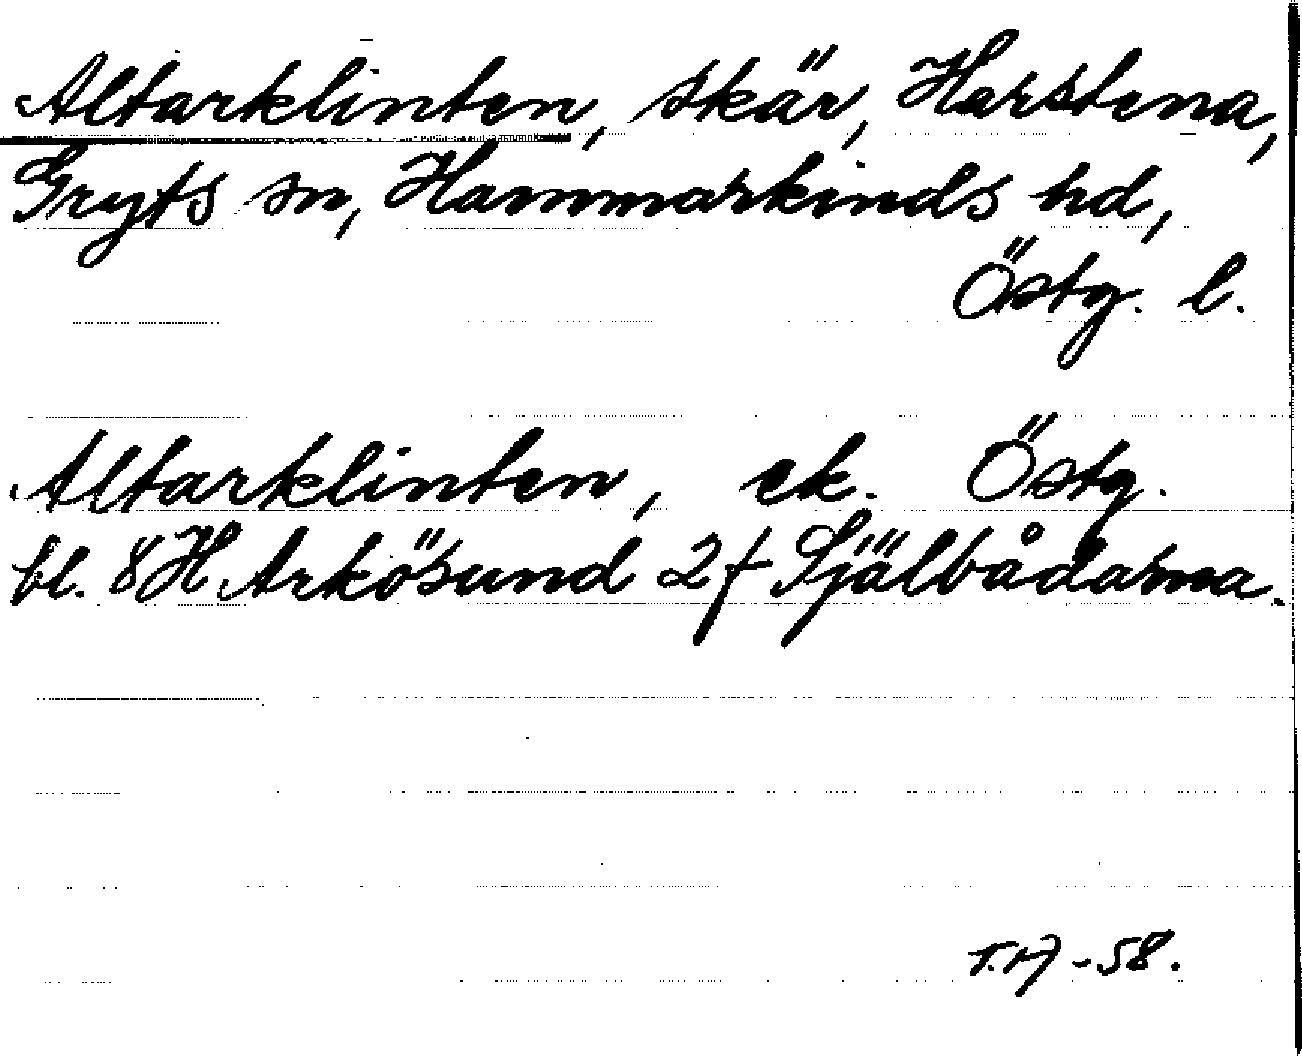 Altarklinten, skär, Harstena,
Gryts sn, Hammarkinds hd,
Östg. l.
Altarklinten, ek. Östg.
bl. 8H Arkösund 2f Själbådarna.
-58.